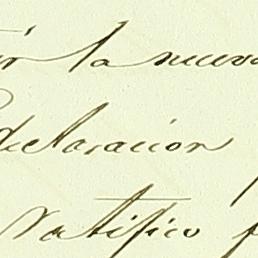 la nueva
declaracion
ratifico